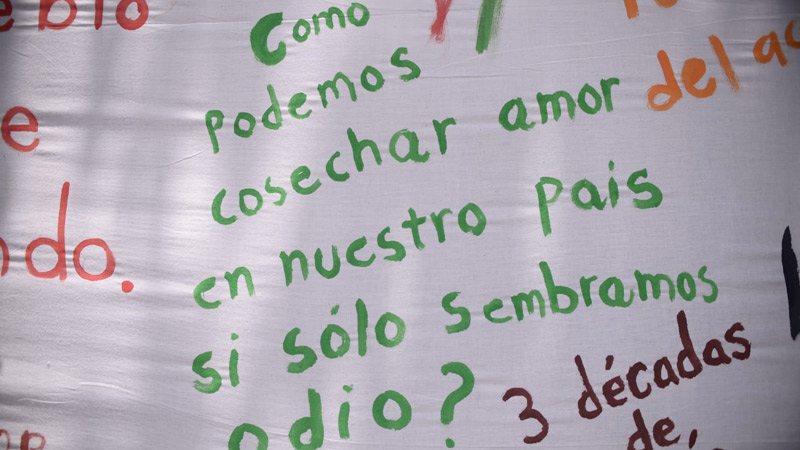 Como
podemos
cosechar amor
en nuestro pais
si sólo sembramos
odio?
do.
e
del
3 décadas
de,